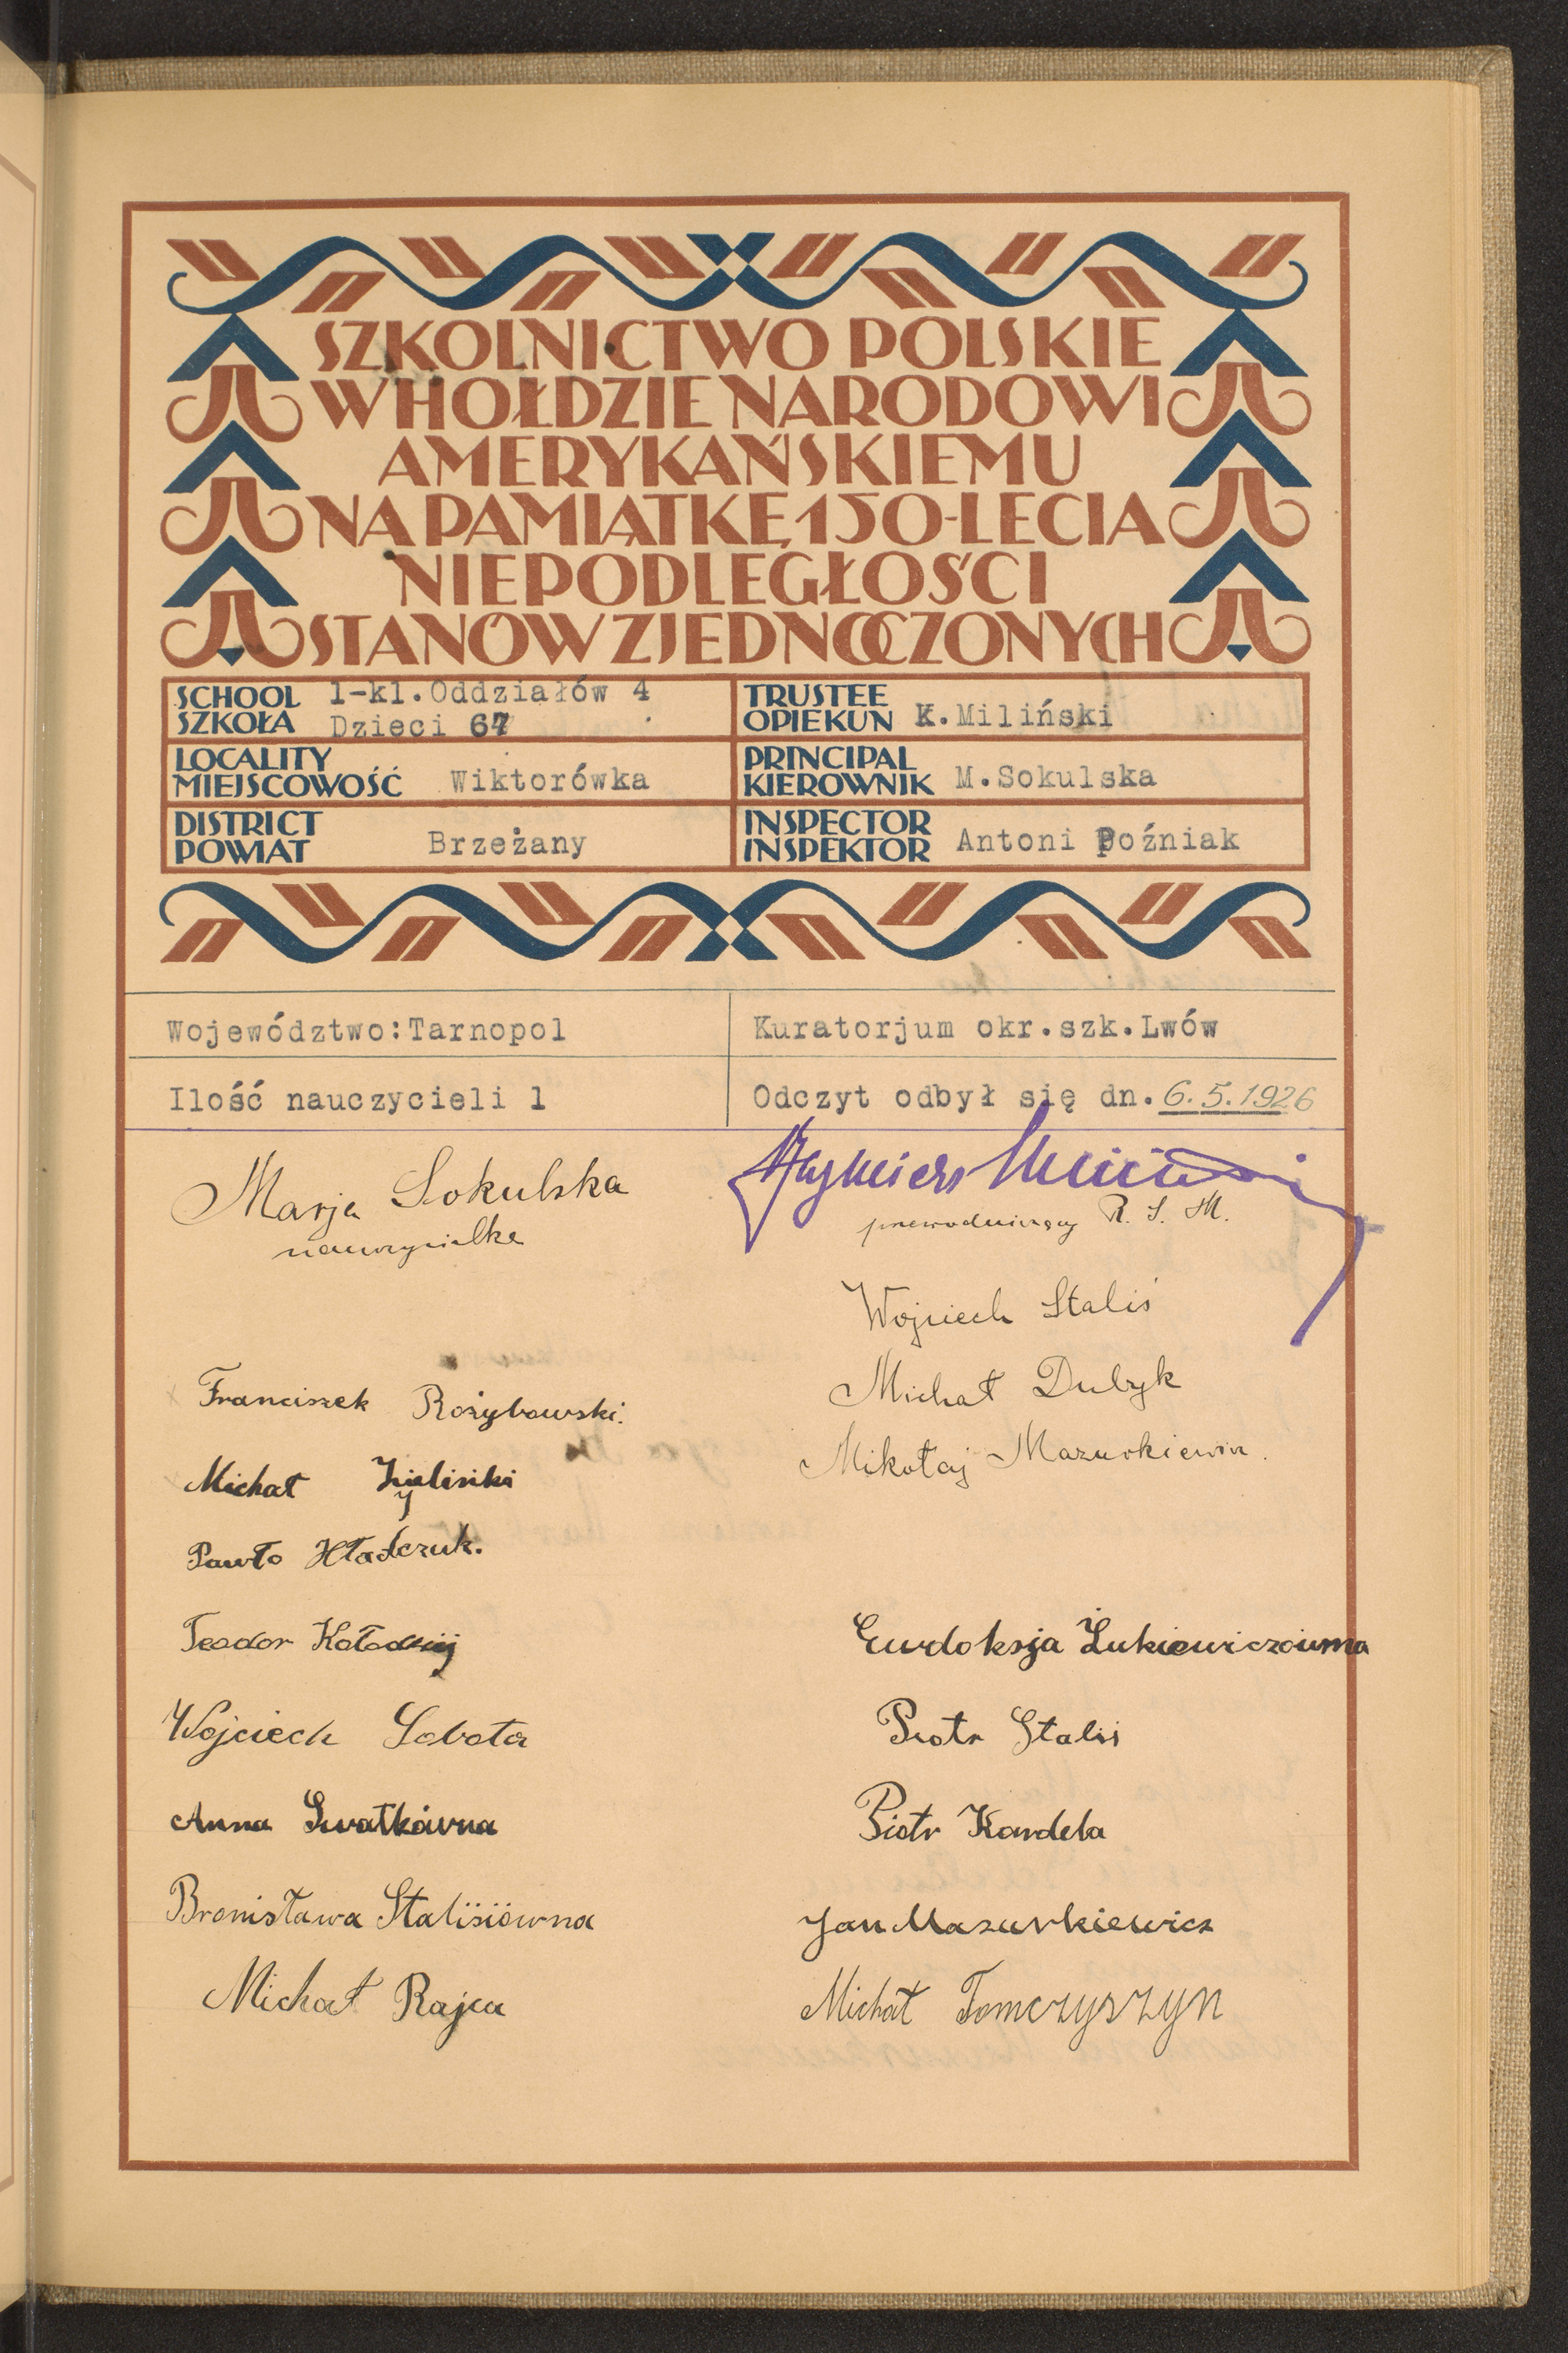 SZKOLNICTWO POLSKIE
W HOŁDZIE NARODOWI
AMERYKAŃSKIEMU
NA PAMIĄTKĘ 150-LECIA
NIEPODLEGŁOŚCI
STANÓW ZJEDNOCZONYCH
SCHOOL
SZKOŁA
1-kl.Oddziałów 4
Dzieci 67
TRUSTEE
OPIEKUN K.Miliński
LOCALITY
MIEJSCOWOŚĆ Wiktorówka
PRINCIPAL
KIEROWNIK M.Sokulska
DISTRICT
POWIAT Brzeżany
INSPECTOR
INSPEKTOR Antoni Poźniak
Województwo:Tarnopol
Kuratorjum okr.szk.Lwów
Ilość nauczycieli 1
Odczyt odbył się dn. 6.5.1926
Marja Sokulska
nauczycielka
przewodniczący R. S. M.
Wojciech Staliś
Michał Dubyk
Mikołaj Mazurkiewicz.
Franciszek Rozybowski.
Michał
Pawło Hładczuk.
Teodor Kołodziej
Wojciech Sobota
Anna Swatkówna
Bronisława Stalisiówna
Michał Rajca
Eurdoksja Żukiewiczówna
Piotr Staliś
Piotr Kardela
Jan Mazurkiewicz
Michał Tomczyszyn